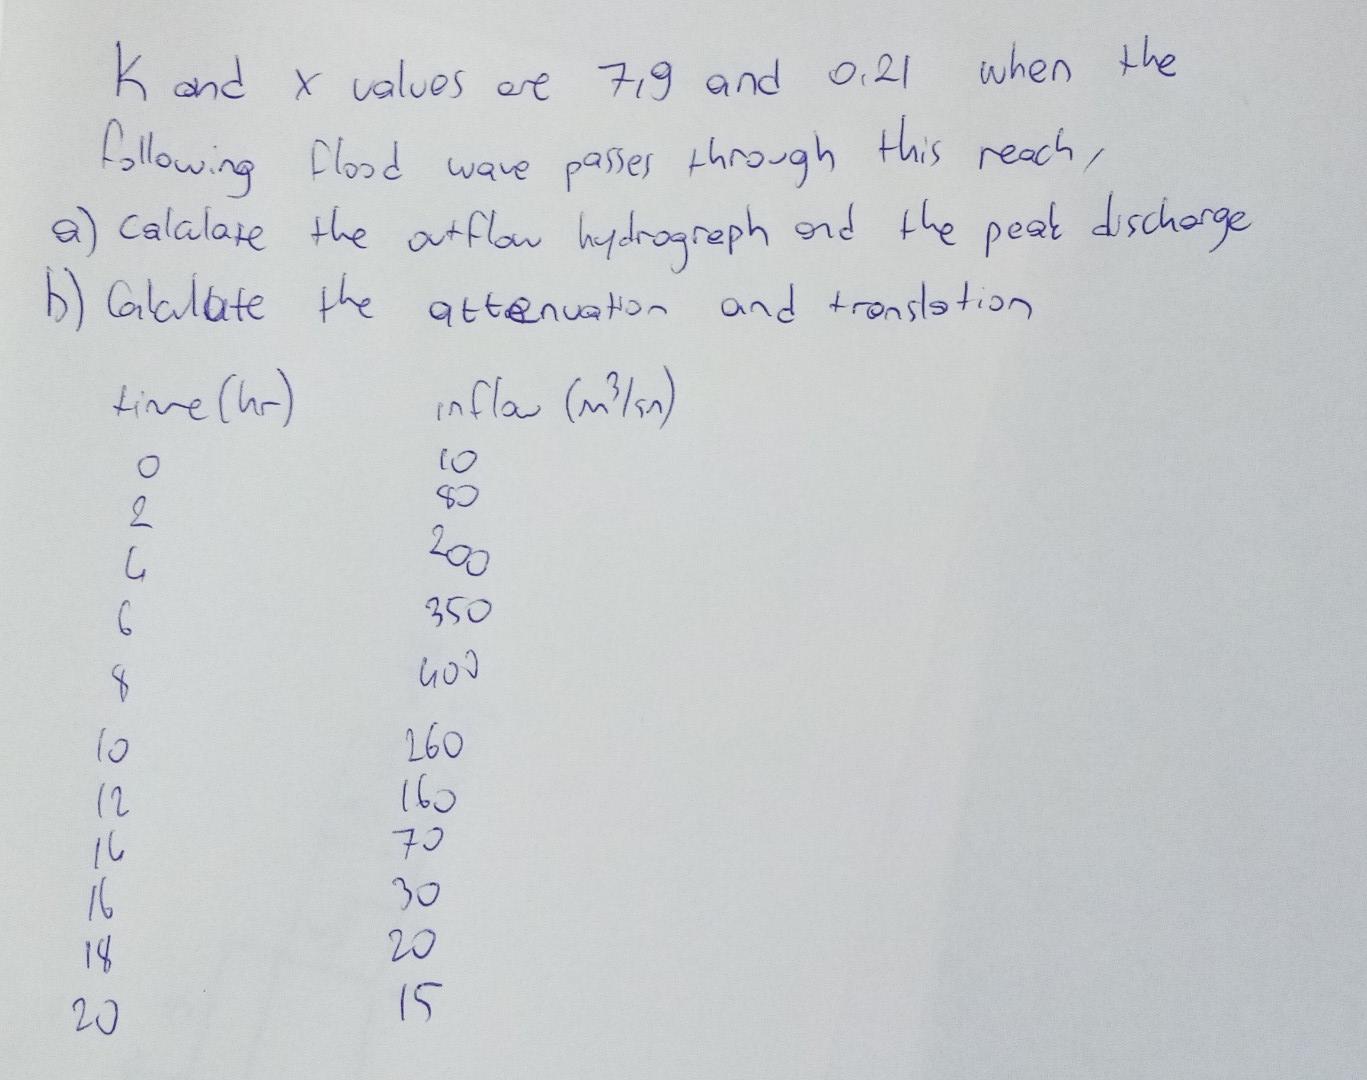 K and x values are 7,9 and 0,21 when the
following flood wave passes through this reach,
a) Calculate the outflow hydrograph and the peak discharge
b) Calculate the attenuation and translation
time (hr) inflow (m³/sn)
0 10
2 80
4 200
6 350
8 400
10 260
12 160
14 70
16 30
18 20
20 15